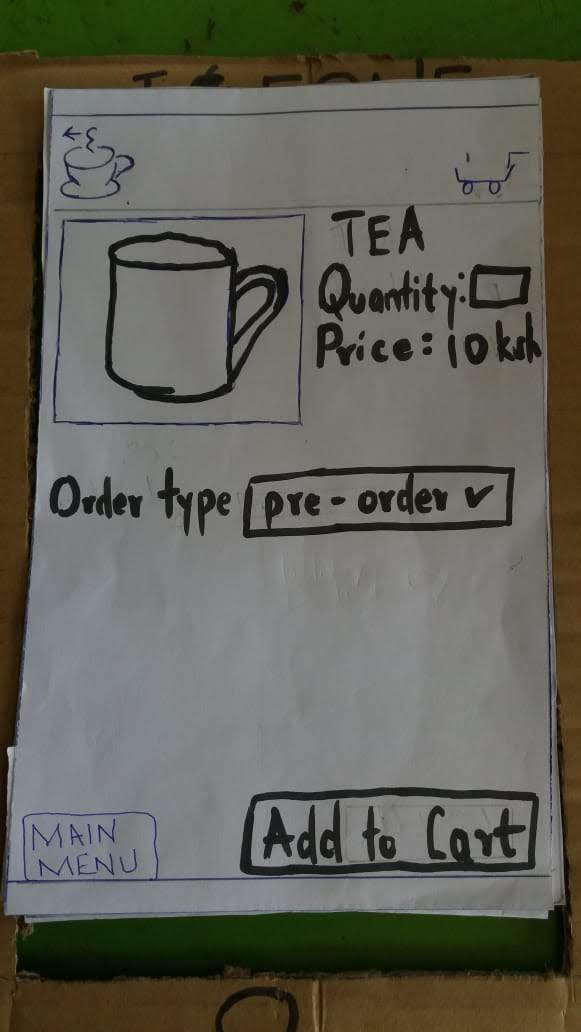 TEA
Quantity:
Price: 10 ksh
Order type pre-order
MAIN
MENU
Add to Cart